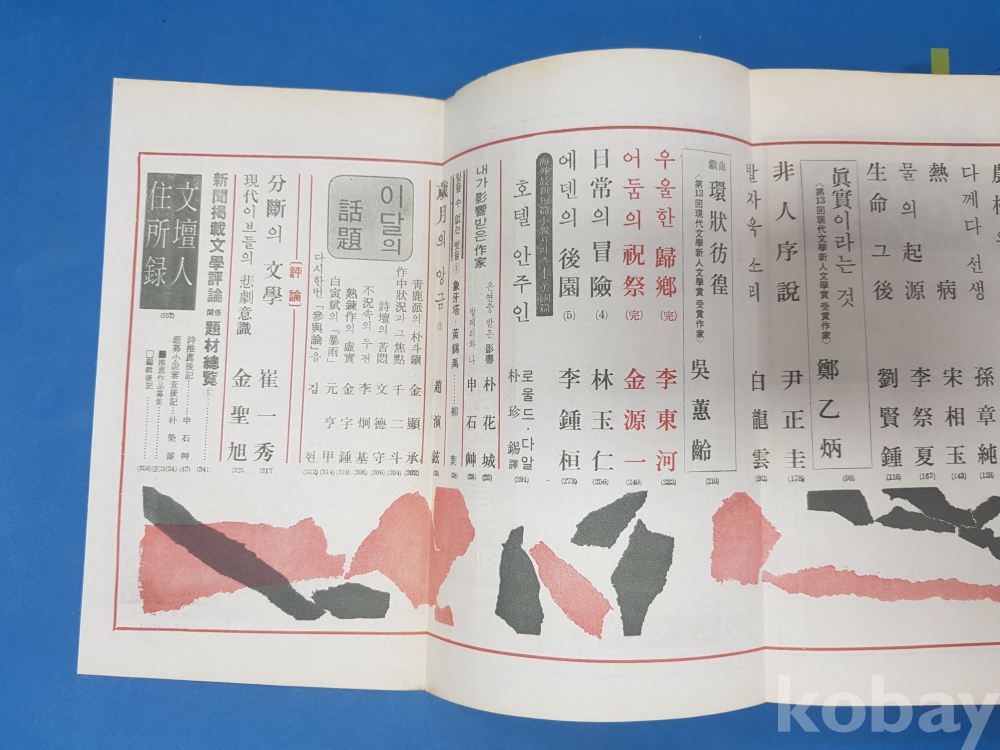 孫章純
다께다 선생
(128)
宋相玉
熱病
(143)
李祭夏
물의 起源
(163)
劉賢鍾
生命 그 後
(116)
眞實이라는 것
〈第13回現代文學新人文學賞 受賞作家〉
鄭乙炳
(98)
非人序說
尹正圭
(178)
발자욱 소리
白龍雲
戱曲 環狀彷徨
〈第13回現代文學新人文學賞 受賞作家〉
吳蕙齡
(210)
우울한 歸鄕(完)
李東河
(222)
어둠의 祝祭(完)
金源一
(240)
日常의 冒險(4)
林玉仁
(256)
에덴의 後園(5)
李鍾桓
(273)
호텔 안주인
로울드·다알
朴珍錫譯
(291)
내가 影響받은 作家
은연중 받은 影響
朴花城
申石艸
잊을 수 없는 것들
象牙塔·黃錫禹……柳葉
歲月의 앙금
趙演鉉
이달의 話題
靑鹿派의 朴斗鎭
金顯承
(302)
作中狀況과 그 焦點
千二斗
(304)
詩壇의 苦悶
文德守
(306)
不況속의 두 편
李炯基
(308)
熟鍊作의 虛實
金宇鍾
(310)
白寅斌의「暴雨」
元亨甲
(314)
다시한번「參與論」을
김현
(312)
〔評論〕
分斷의 文學
崔一秀
(317)
現代이브들의 悲劇意識
金聖旭
(325)
新聞揭載文學評論關係 題材總覽⑤
(341)
詩推薦後記……申石艸
(43)
應募小說審査後記…朴榮濬
■推薦作品募集
□編輯後記
文壇人住所録
(357)
kobay